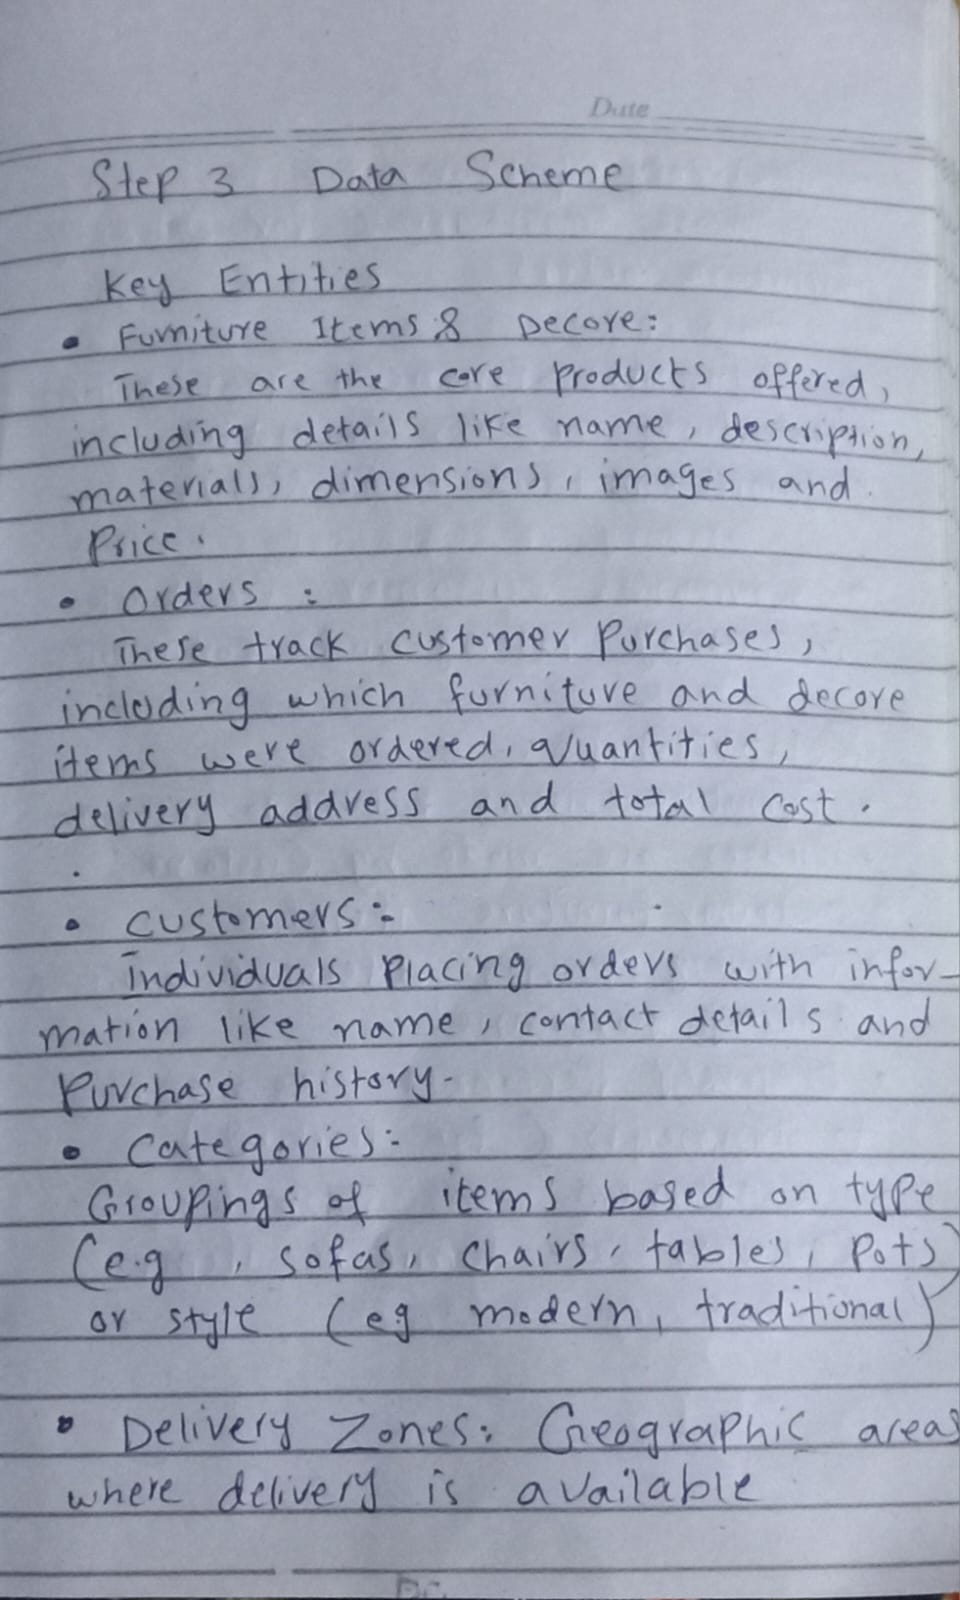 Date
Step 3 Data Scheme
Key Entities
• Furniture Items & Decore:
These are the core products offered,
including details like name, description,
materials, dimensions, images and
Price.
• Orders :
These track customer Purchases,
including which furniture and decore
items were ordered, quantities,
delivery address and total cost.
• Customers :-
Individuals Placing orders with infor-
mation like name, contact details and
Purchase history.
• Categories :-
Groupings of items based on type
(e.g , sofas, chairs, tables, Pots)
or style (eg modern, traditional)
• Delivery Zones: Geographic areas
where delivery is available